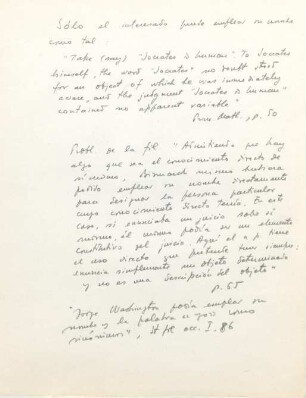 Sólo el interesado puede emplear su nombre
como tal:
"Take (say) 'Socrates is human'. To Socrates
himself, the word "Socrates" no doubt stood
for an object of which he was immediately
aware, and the judgment "Socrates is human"
contained no apparent variable"
Princ Math., p. 50
Probl de la fil "Admitiendo que hay
algo que sea el conocimiento directo de
sí mismo, Bismarck mismo hubiera
podido emplear su nombre directamente
para designar la persona particular
cuyo conocimiento directo tenía. En este
caso, si enunciaba un juicio sobre sí
mismo, él mismo podía ser un elemento
constitutivo del juicio. Aquí el n. p. tiene
el uso directo que pretende tener siempre;
enuncia simplemente un objeto determinado
y no es una descripción del objeto"
p. 65
"Jorge Washington podía emplear su
nombre y la palabra «yo» como
sinónimos", I, 86